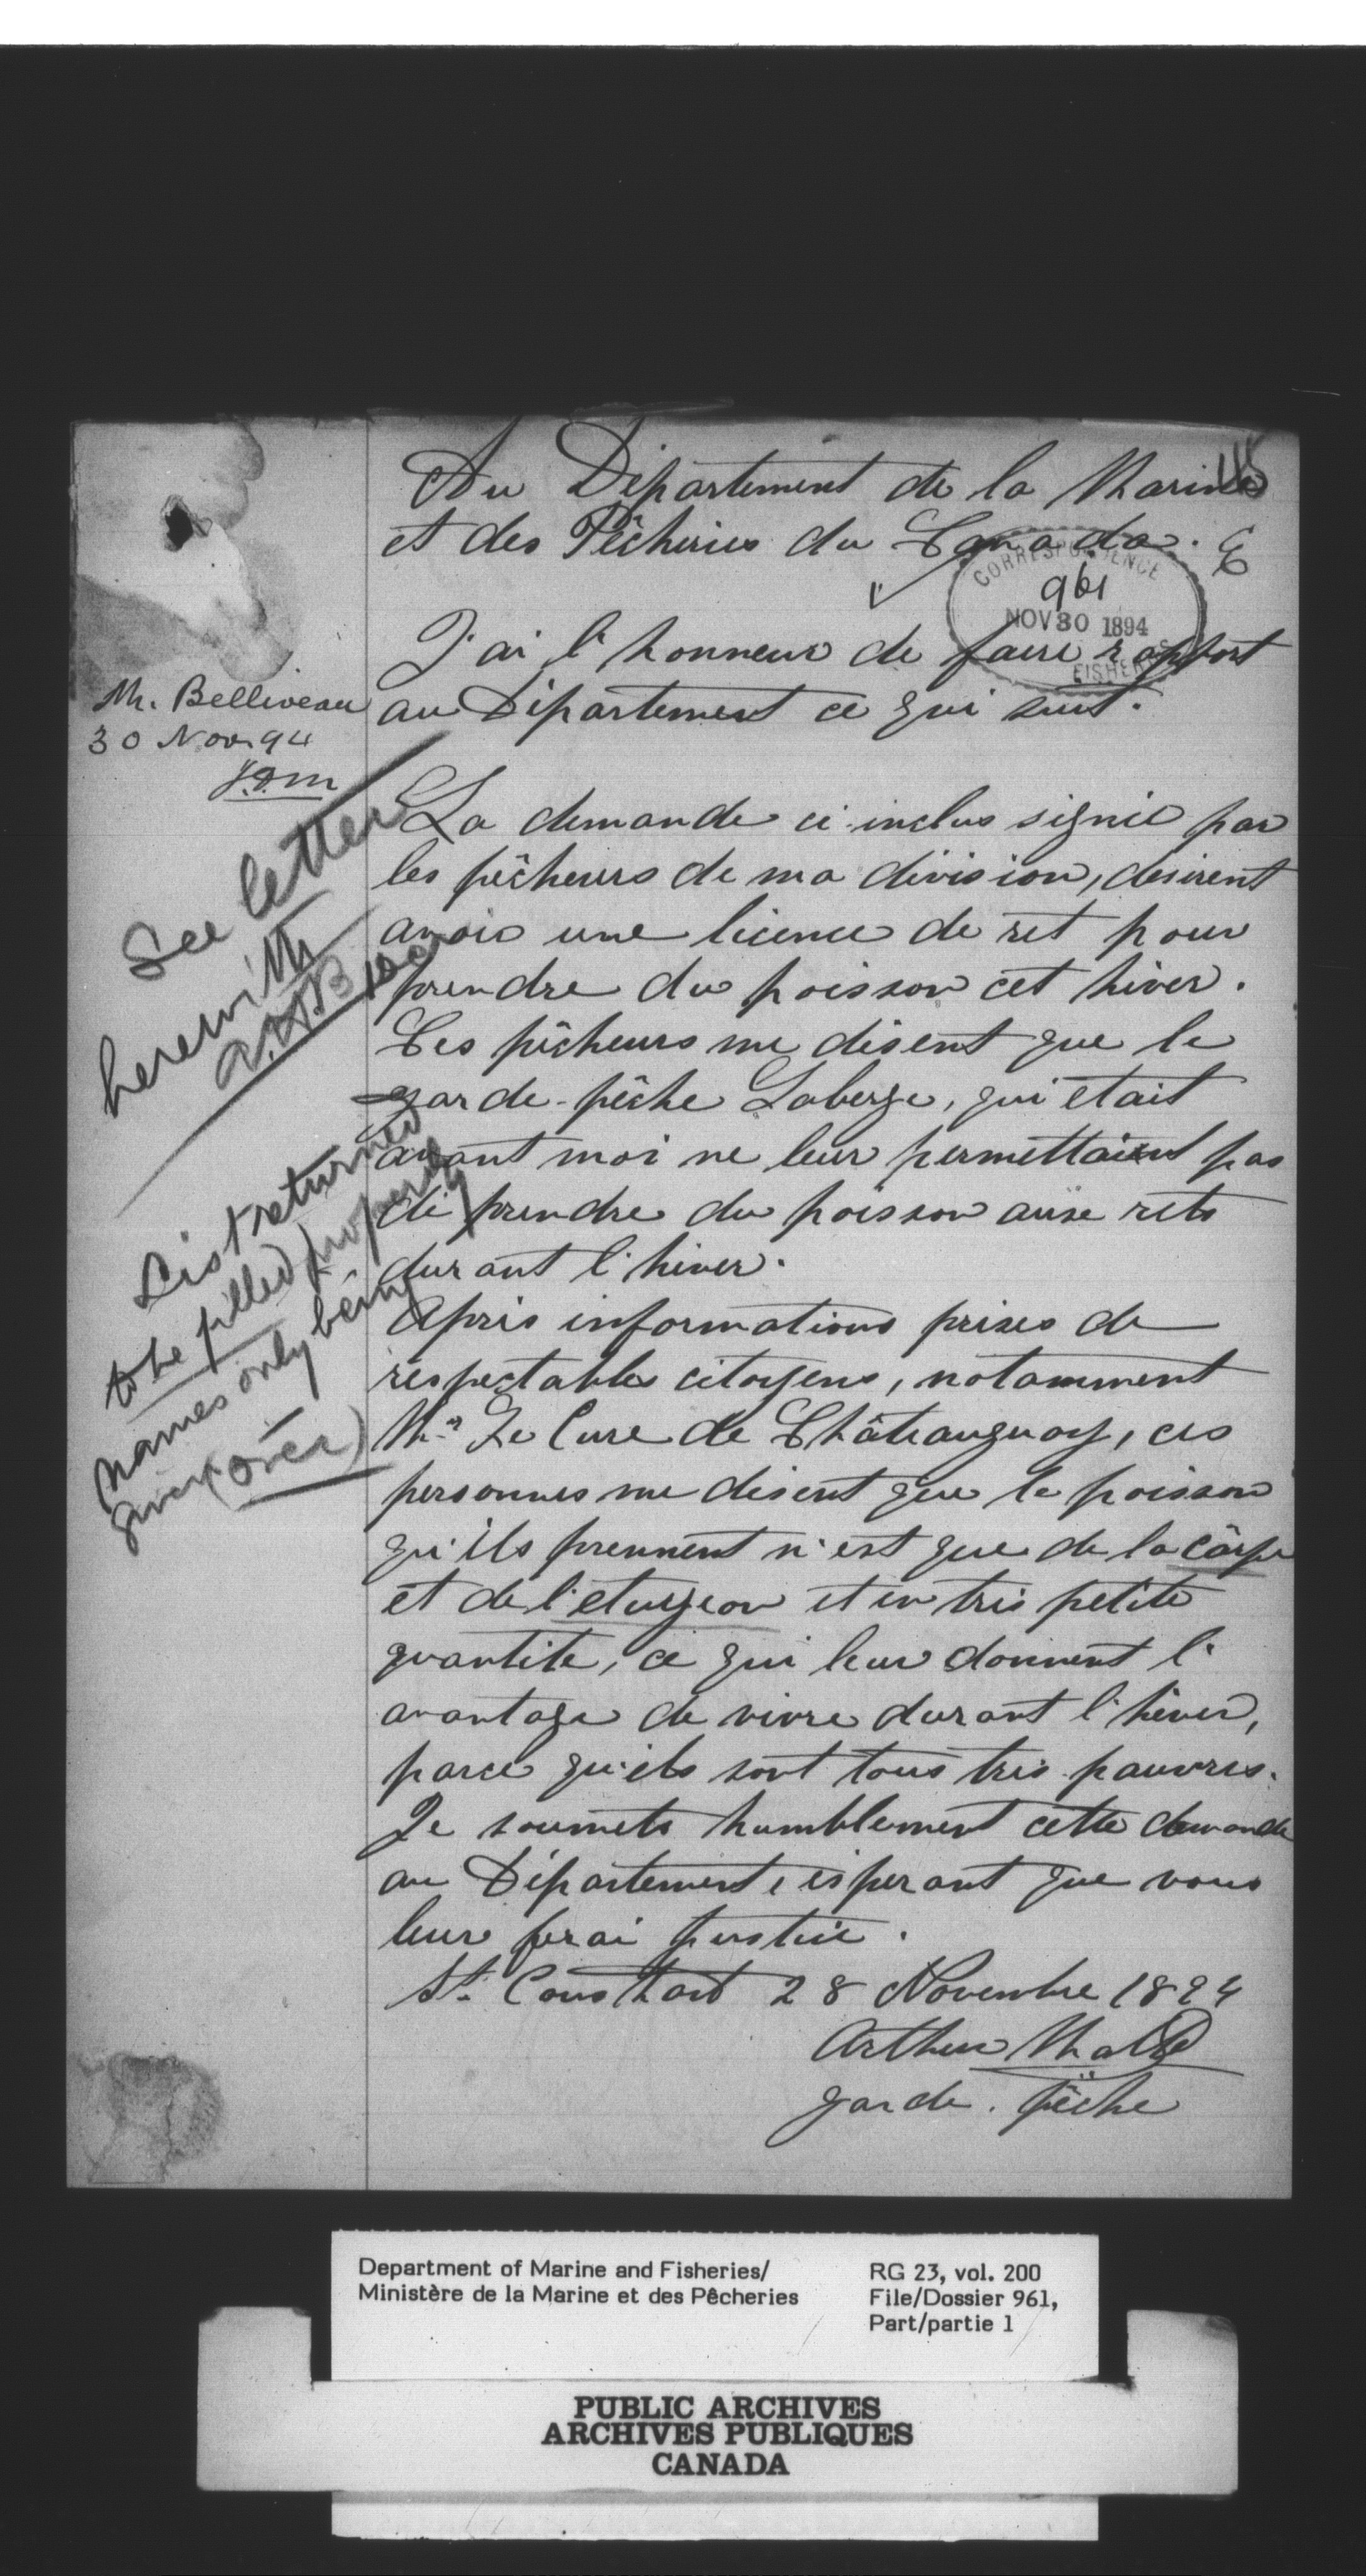 Au Département de la Marine
et des Pêcheries du Canada.
CORRESPONDENCE
961
NOV 30 1894
FISHERIES
J'ai l'honneur de faire rapport
au Département ce qui suit.
Mr. Belliveau
30 Nov 94
See letter
herewith
La demande ci-inclus signée par
les pêcheurs de ma division, desirent
avoir une licence de ret pour
prendre du poisson cet hiver.
Ces pêcheurs me disent que le
garde-pêche Laberge, qui etait
avant moi ne leur permettaient pas
de prendre du poisson aux rets
durant l'hiver.
List returned
to be filled properly
names only being
given (over)
Après informations prises de
respectables citoyens, notamment
Mr Le Cure de Châteauguay, ces
personnes me disent que le poisson
qu'ils prennent n'est que de la carpe
et de l'eturgeon et en très petite
quantite, ce qui leur donnent l'
avantage de vivre durant l'hiver,
parce qu'ils sont tous très pauvres.
Je soumets humblement cette demande
au Département, esperant que vous
leur ferai justice.
St. Constant 28 Novembre 1894
Arthur
garde. pêche
Department of Marine and Fisheries/
Ministère de la Marine et des Pêcheries
RG 23, vol. 200
File/Dossier 961,
Part/partie 1
PUBLIC ARCHIVES
ARCHIVES PUBLIQUES
CANADA